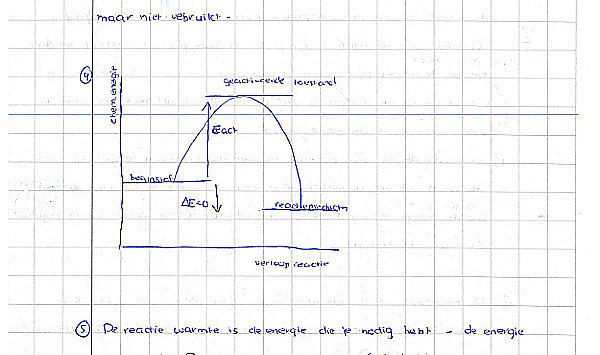 maar niet verbruikt.
④
geactiveerde toestand
chem. energie
Eact
beginstof
ΔE<0
reactieproducten
verloop reactie
⑤ De reactie warmte is de energie die je nodig hebt - de energie